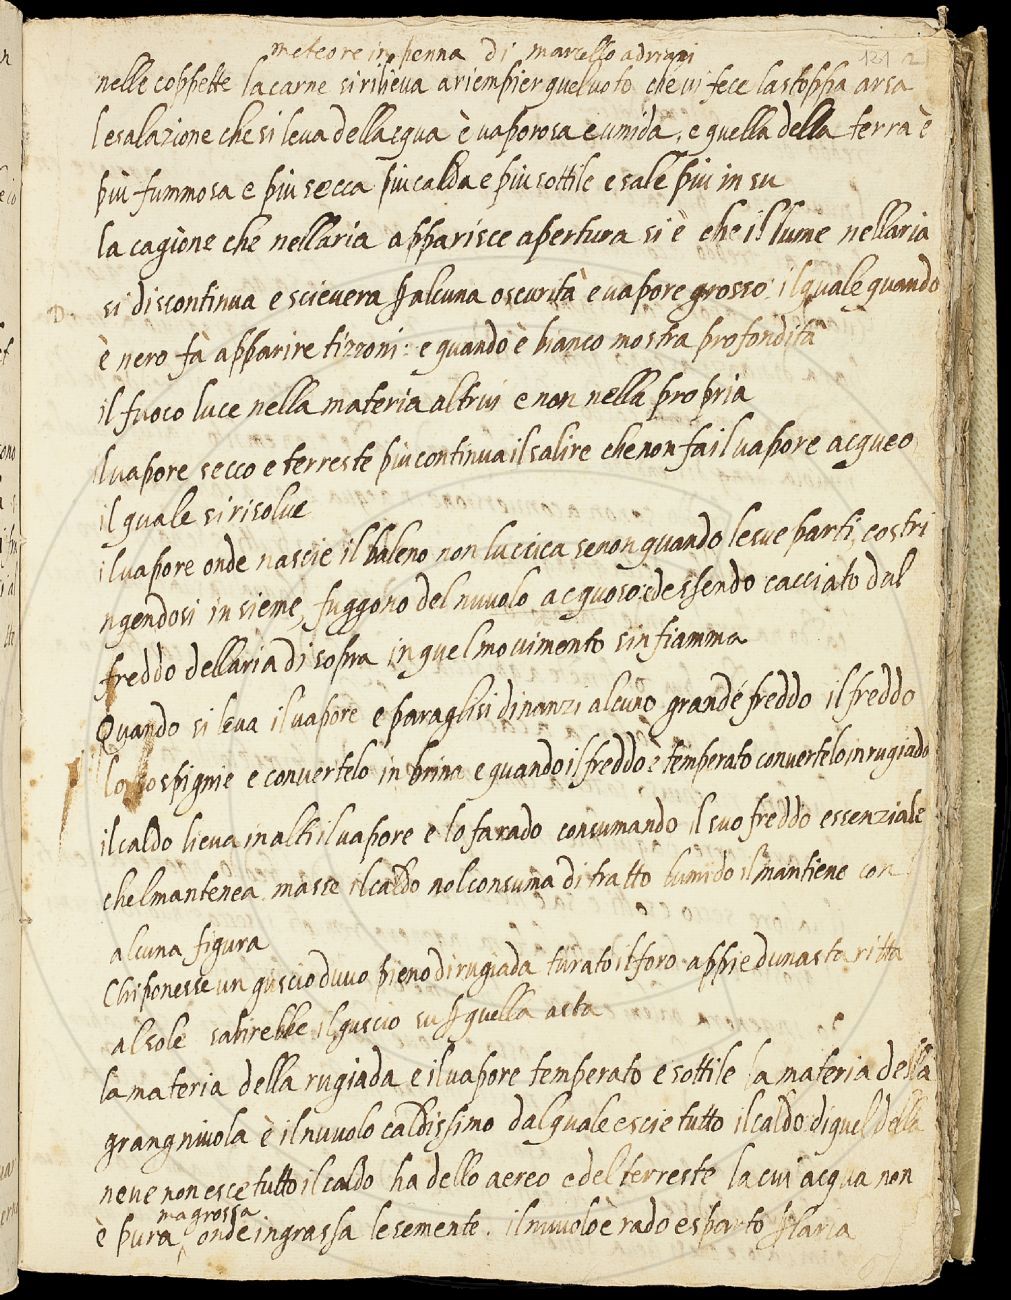 meteore in penna di marcello adriani
121 2
nelle coppette la carne si rilieva a riempier quel voto che vi fece la stoppa arsa
lesalazione che si leva dellacqua è vaporosa e umida . e quella della terra è
più fummosa e più secca più calda e più sottile e sale più in su
la cagione che nellaria apparisce apertura si è che il lume nellaria
si discontinua e scievera ꝑ alcuna oscurità e vapore grosso il quale quando
è nero fà apparire tizzoni : e quando è bianco mostra profondità
il fuoco luce nella materia altrui e non nella propria
il vapore secco e terreste più continua il salire che non fa il vapore acqueo
il quale si risolve
il vapore onde nascie il baleno non luccica se non quando le sue parti , costri
ngendosi insieme , fuggono del nuvolo acquoso : ed essendo cacciato dal
freddo dellaria di sopra in quel movimento sinfiamma
Quando si leva il vapore e paraglisi dinanzi alcuno grande freddo il freddo
lo sospignie e convertelo in brina e quando il freddo è temperato convertelo in rugiada
il caldo lieva in alto il vapore e lo fa rado consumando il suo freddo essenziale
chel mantenea masse il caldo nol consuma di tratto lumido il mantiene con
alcuna figura
Chi ponesse un guscio duvo pieno di rugiada turato il foro appie dunasta ritta
al sole salirebbe il guscio su ꝑ quella asta
la materia della rugiada e il vapore temperato e sottile la materia della
grangnivola è il nuvolo caldissimo dal quale escie tutto il caldo : di quel della
neve non esce tutto il caldo ha dello aereo e del terreste la cui acqua non
ma grossa
è pura onde ingrassa le semente . il nuvolo è rado e sparto ꝑ laria